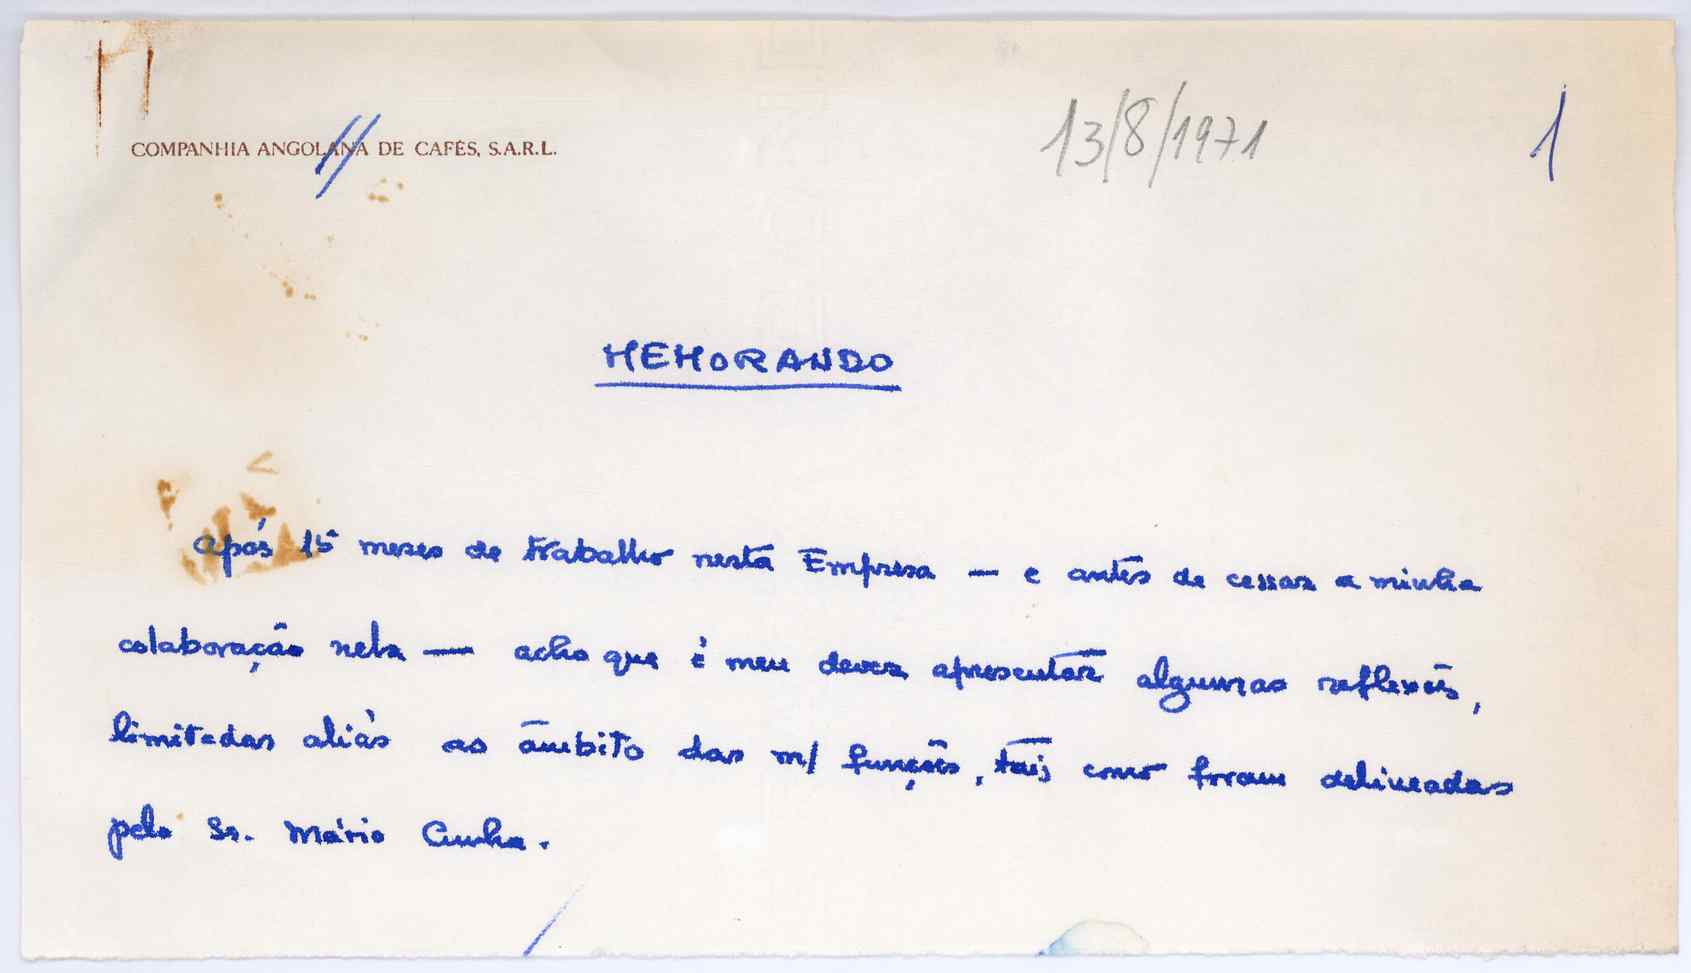 COMPANHIA ANGOLANA DE CAFÉS, S.A.R.L.
13/8/1971
1
MEMORANDO
Após 15 meses de trabalho nesta Empresa — e antes de cessar a minha
colaboração nela — acho que é meu dever apresentar algumas reflexões,
limitadas aliás ao âmbito das m/ funções, tais como foram delineadas
pelo Sr. Mário Cunha.